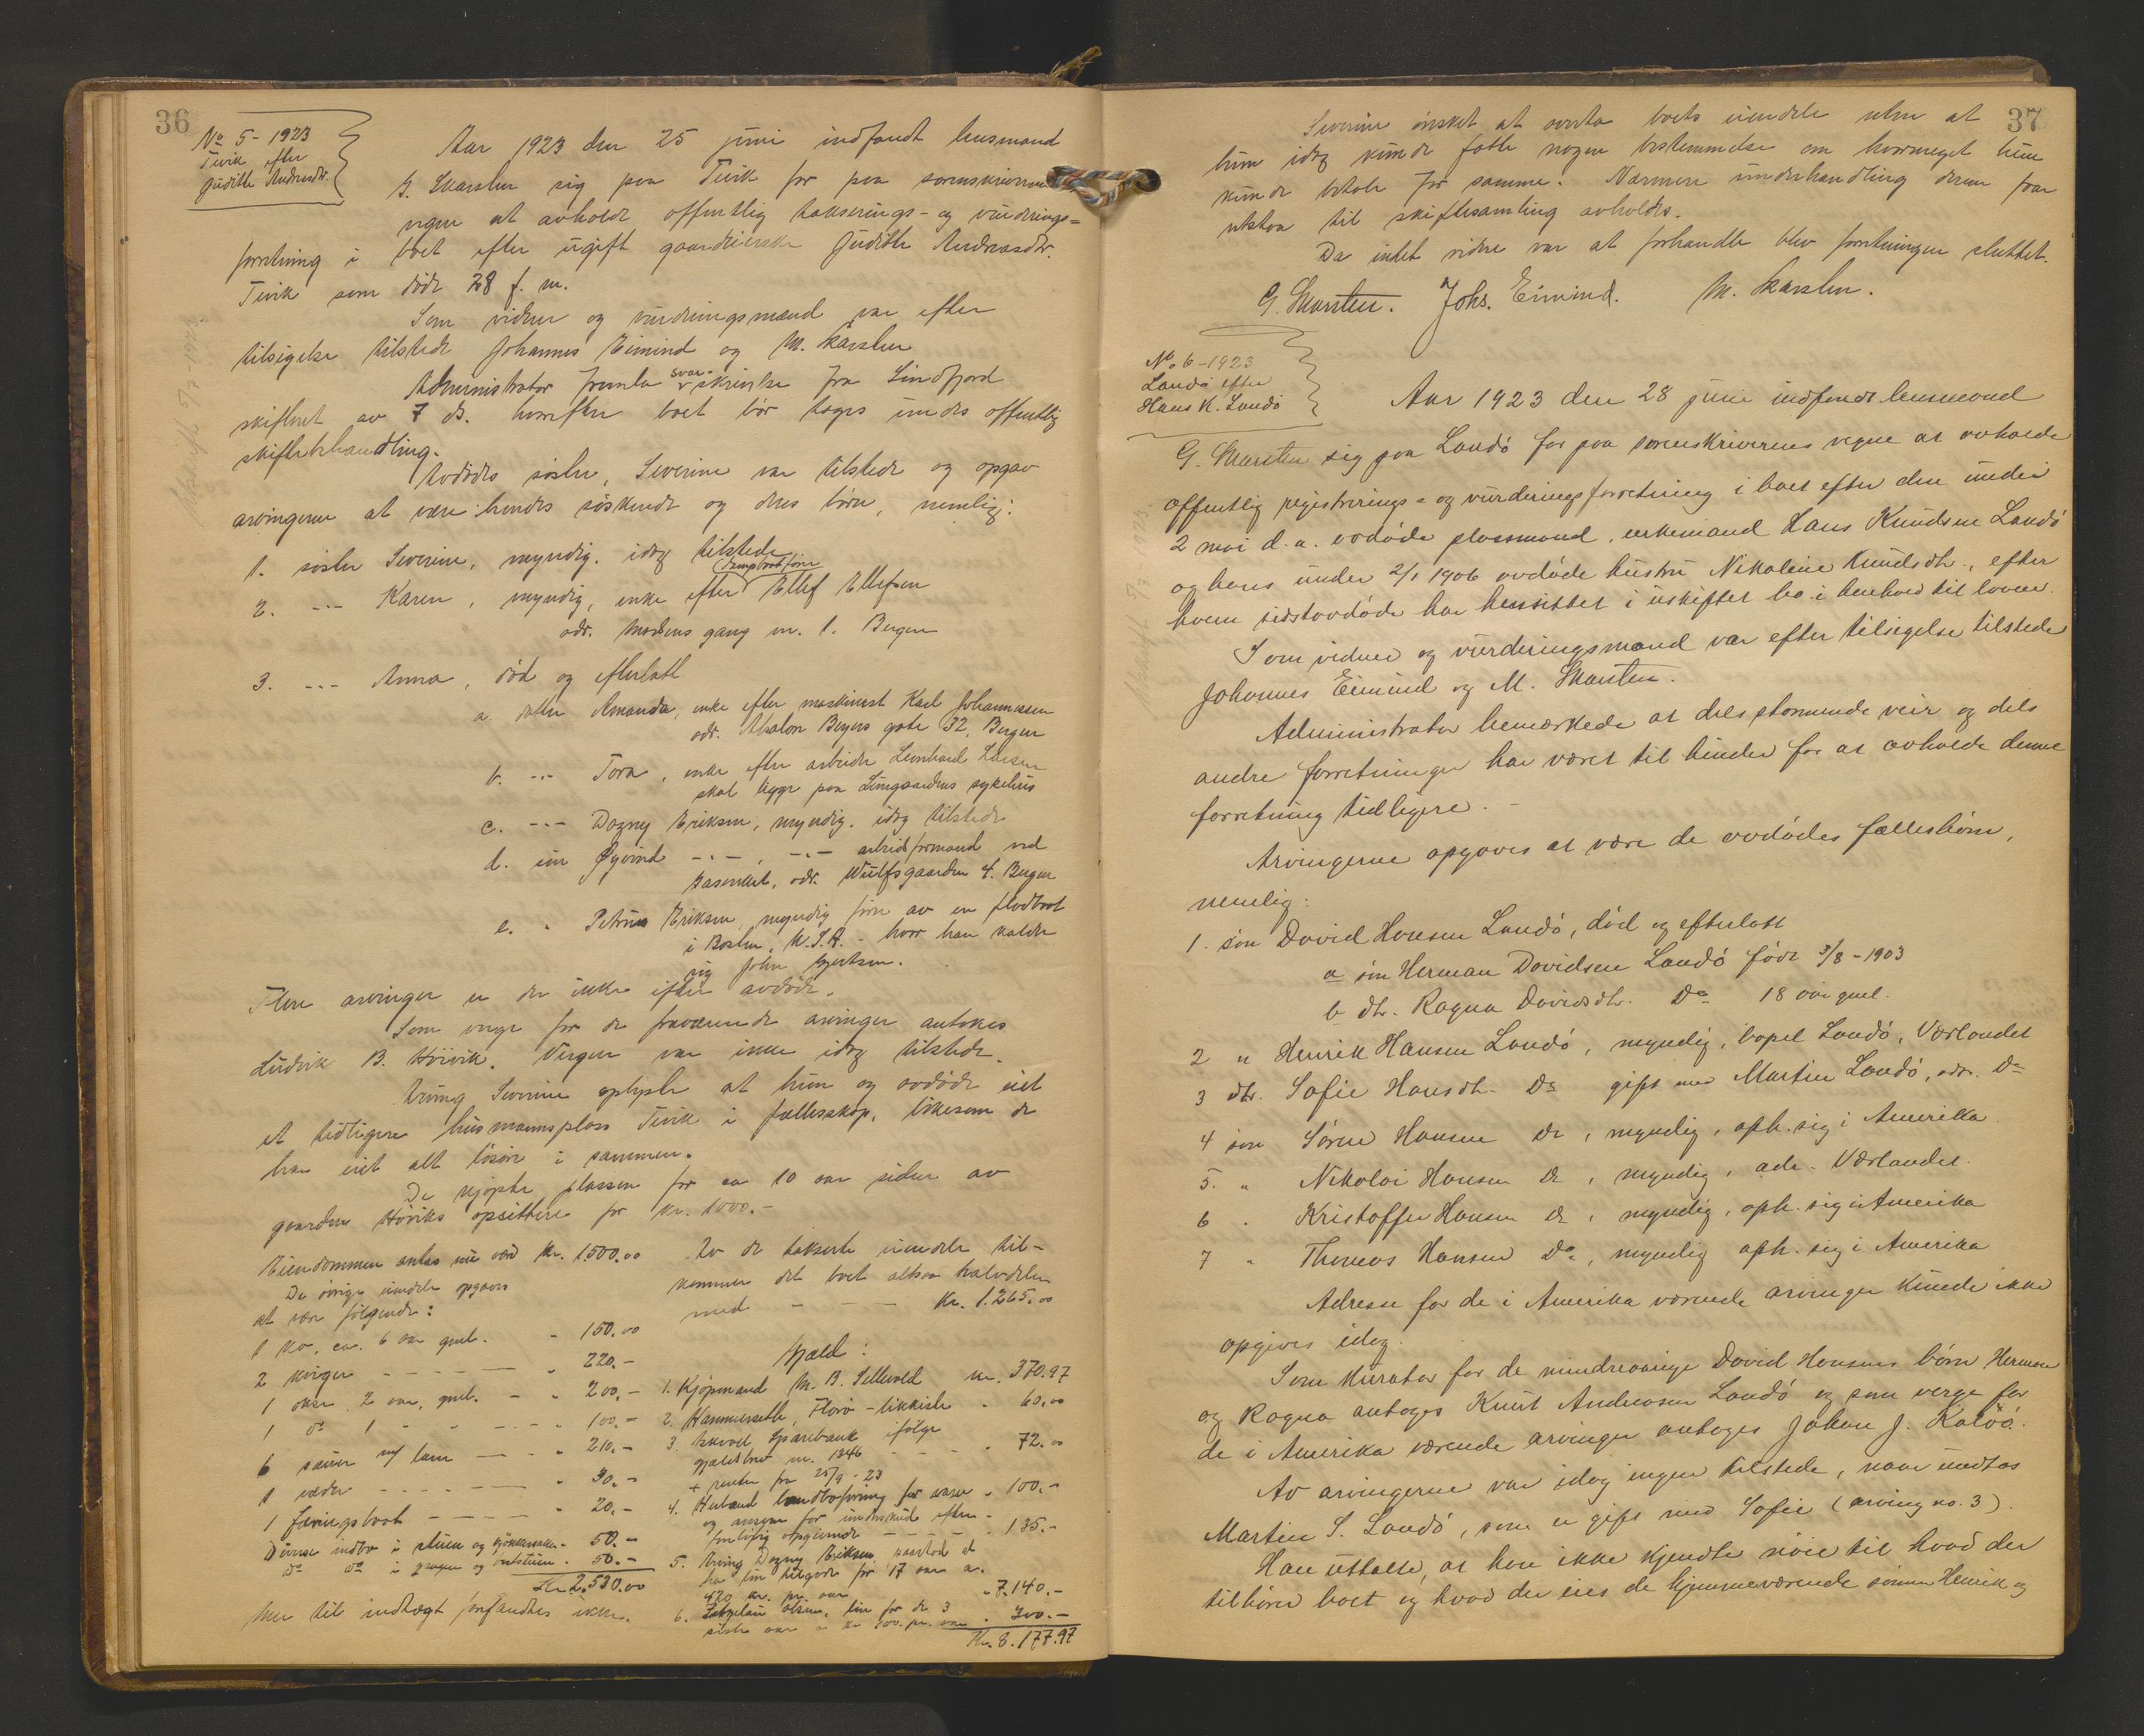 36
No 5 - 1923
Tevik efter
Judithe Andreasdr.
Aar 1923 den 25 juni indfandt lensmand
G. Skarsten sig paa Tevik for paa sorenskriverens
vegne at avholde offentlig takserings- og vurderings=
forretning i boet efter ugift gaardeierske Judithe Andreasdr.
Tevik som döde 28 f. m.
Som vidner og vurderingsmænd var efter
tilsigelse tilstede Johannes Eimind og M. Karsten
Administrator fremla svar-skrivelse fra Sundfjord
skifteret av 7 ds. hvorefter boet bör tages under offentlig
skiftebehandling.
Avdödes söster, Severine var tilstede og opgav
arvingerne at være hendes söskende og deres börn, nemlig:
1. söster Severine, myndig. idag tilstede
2. -.- Karen, myndig, enke efter Ellef Ellefsen
adr. Modens gang nr. 1. Bergen
3. -.- Anna, död og efterlatt
a. datter Amanda, enke efter maskinist Karl Johannessen
adr. Absalon Beyers gate 32, Bergen
b. -.- Tora, enke efter arbeider Leonhard Larsen
skal ligge paa Lungaardens sykehus
c. -.- Dagny Eriksen, myndig. idag tilstede
d. sön Øyvind -.-, -.- arbeidsformand ved
adr. Wulfsgaarden 4. Bergen
e. " Petrus Eriksen, myndig förer av en flodbaat
i Boston, U.S.A. - hvor han kalder
sig John
Flere arvinger er der ikke efter avdöde.
Som verge for de fraværende arvinger antokes
Ludvik B. Höivik. Vergen var ikke idag tilstede.
Arving Severine oplyste at hun og avdöde eiet
et tidligere husmannsplass Tevik i fællesskap, likesom de
har eiet alt lösöre i sammen.
De kjöpte plassen for ca 10 aar siden av
gaarden Höiviks opsittere for kr. 1000.-
Eiendommen antas nu værd kr. 1.500.00
De övrige eiendele opgaves
at være fölgende:
1 ko, ca. 6 aar gml. - 150.00
2 kviger - - - - " 220.-
1 okse 2 aar, gml. - " 200.-
1 do 1 " " - - " 100.-
6 sauer m/ lam - - " 210.-
1 væder - - - - " 30.-
1 færingsbaat - - - - " 20.-
Diverse indbo i stuen og kjökkenet - 50.-
do do i gangen og 50.-
Kr. 2.530.00
Mer til indtægt forfandtes ikke.
Av de takserte eiendele til-
kommer det boet altsaa halvdelen
med - - - Kr. 1.265.00
Gjæld:
1. Kjöpmand M. B. Sellevold kr. 370.97
2. Hammerseth, Florö - likkiste " 60.00
3. Askvoll Sparebank ifölge
gjældsbrev nr. 1346 - - - " 72.00
+ renter fra 25/9 - 23
4. Herland for varer " 100.-
og ansvar for underskud efter
foreløbig opgjørende - - - " 135.-
5. Arving Dagny Eriksen paastod at
ha lön tilgode for 17 aar a.
420 kr. pr. aar " 7.140.-
6. Olsen, lön for de 3
siste aar a kr 100. pr. aar " 300.-
Kr. 8.177.97
37
Severine önsket at overta boets eiendele uten at
hun idag kunde fatte nogen bestemmelse om hvormeget hun
kunde betale for samme. Nærmere underhandling derom faar
utstaa til skiftesamling avholdes.
Da intet videre var at forhandle blev forretningen sluttet.
G. Skarsten. Johs. Eimind. M. Karsten.
No 6 - 1923
Landö efter
Hans K. Landö
Aar 1923 den 28 juni indfandt lensmand
G. Skarsten sig paa Landö for paa sorenskriverens vegne at avholde
offentlig registrerings= og vurderingsforretning i boet efter den under
2 mai d. a. avdöde plassmand, enkemand Hans Knudsen Landö
og hans under 2/1 1906 avdöde hustru Nikoline Knudsdtr., efter
hvem sidstavdöde har hensittet i uskiftet bo i henhold til loven.
Som vidner og vurderingsmænd var efter tilsigelse tilstede
Johannes Eimind og M. Skarsten.
Administrator bemærkede at dels stormende veir og dels
andre forretninger har været til hinder for at avholde denne
forretning tidligere. -
Arvingerne opgaves at være de avdödes fællesbörn,
nemlig:
1. sön David Hansen Landö, död og efterlatt
a sön Herman Davidsen Landö född 3/8 - 1903
b dtr. Ragna Davidsdtr. Do 18 aar gml.
2 " Henrik Hansen Landö, myndig, bopel Landö, Værlandet
3 dtr. Sofie Hansdtr. Do gift med Martin Landö, adr. Do
4 sön Sören Hansen Do, myndig, oph. sig i Amerika
5. " Nikolai Hansen Do, myndig, adr. Værlandet.
6 " Kristoffer Hansen Do, myndig, oph. sig i Amerika
7 " Thomas Hansen Do, myndig oph. sig i Amerika
Adresse for de i Amerika værende arvinger kunde ikke
opgives idag.
Som kurator for de mindreaarige David Hansens börn Herman
og Ragna antoges Knut Andreasen Landö og som verge for
de i Amerika værende arvinger antoges Johan J. Kalvö.
Av arvingerne var idag ingen tilstede, naar undtas
Martin S. Landö, som er gift med Sofie (arving no. 3).
Han uttalte, at han ikke kjendte nöie til hvad der
tilhörer boet og hvad der eies de hjemmeværende sönner Henrik og